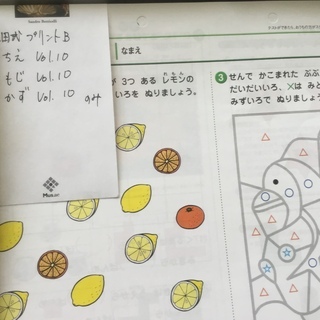 Sandro Botticelli
プリント B
ちえ Vol.10
もじ Vol.10
かず Vol. 10 のみ
なまえ
3つ ある レモンの
いろを ぬりましょう。
3 せんで かこまれた ぶぶ
だいだいいろ、×は みど
みずいろで ぬりましょ